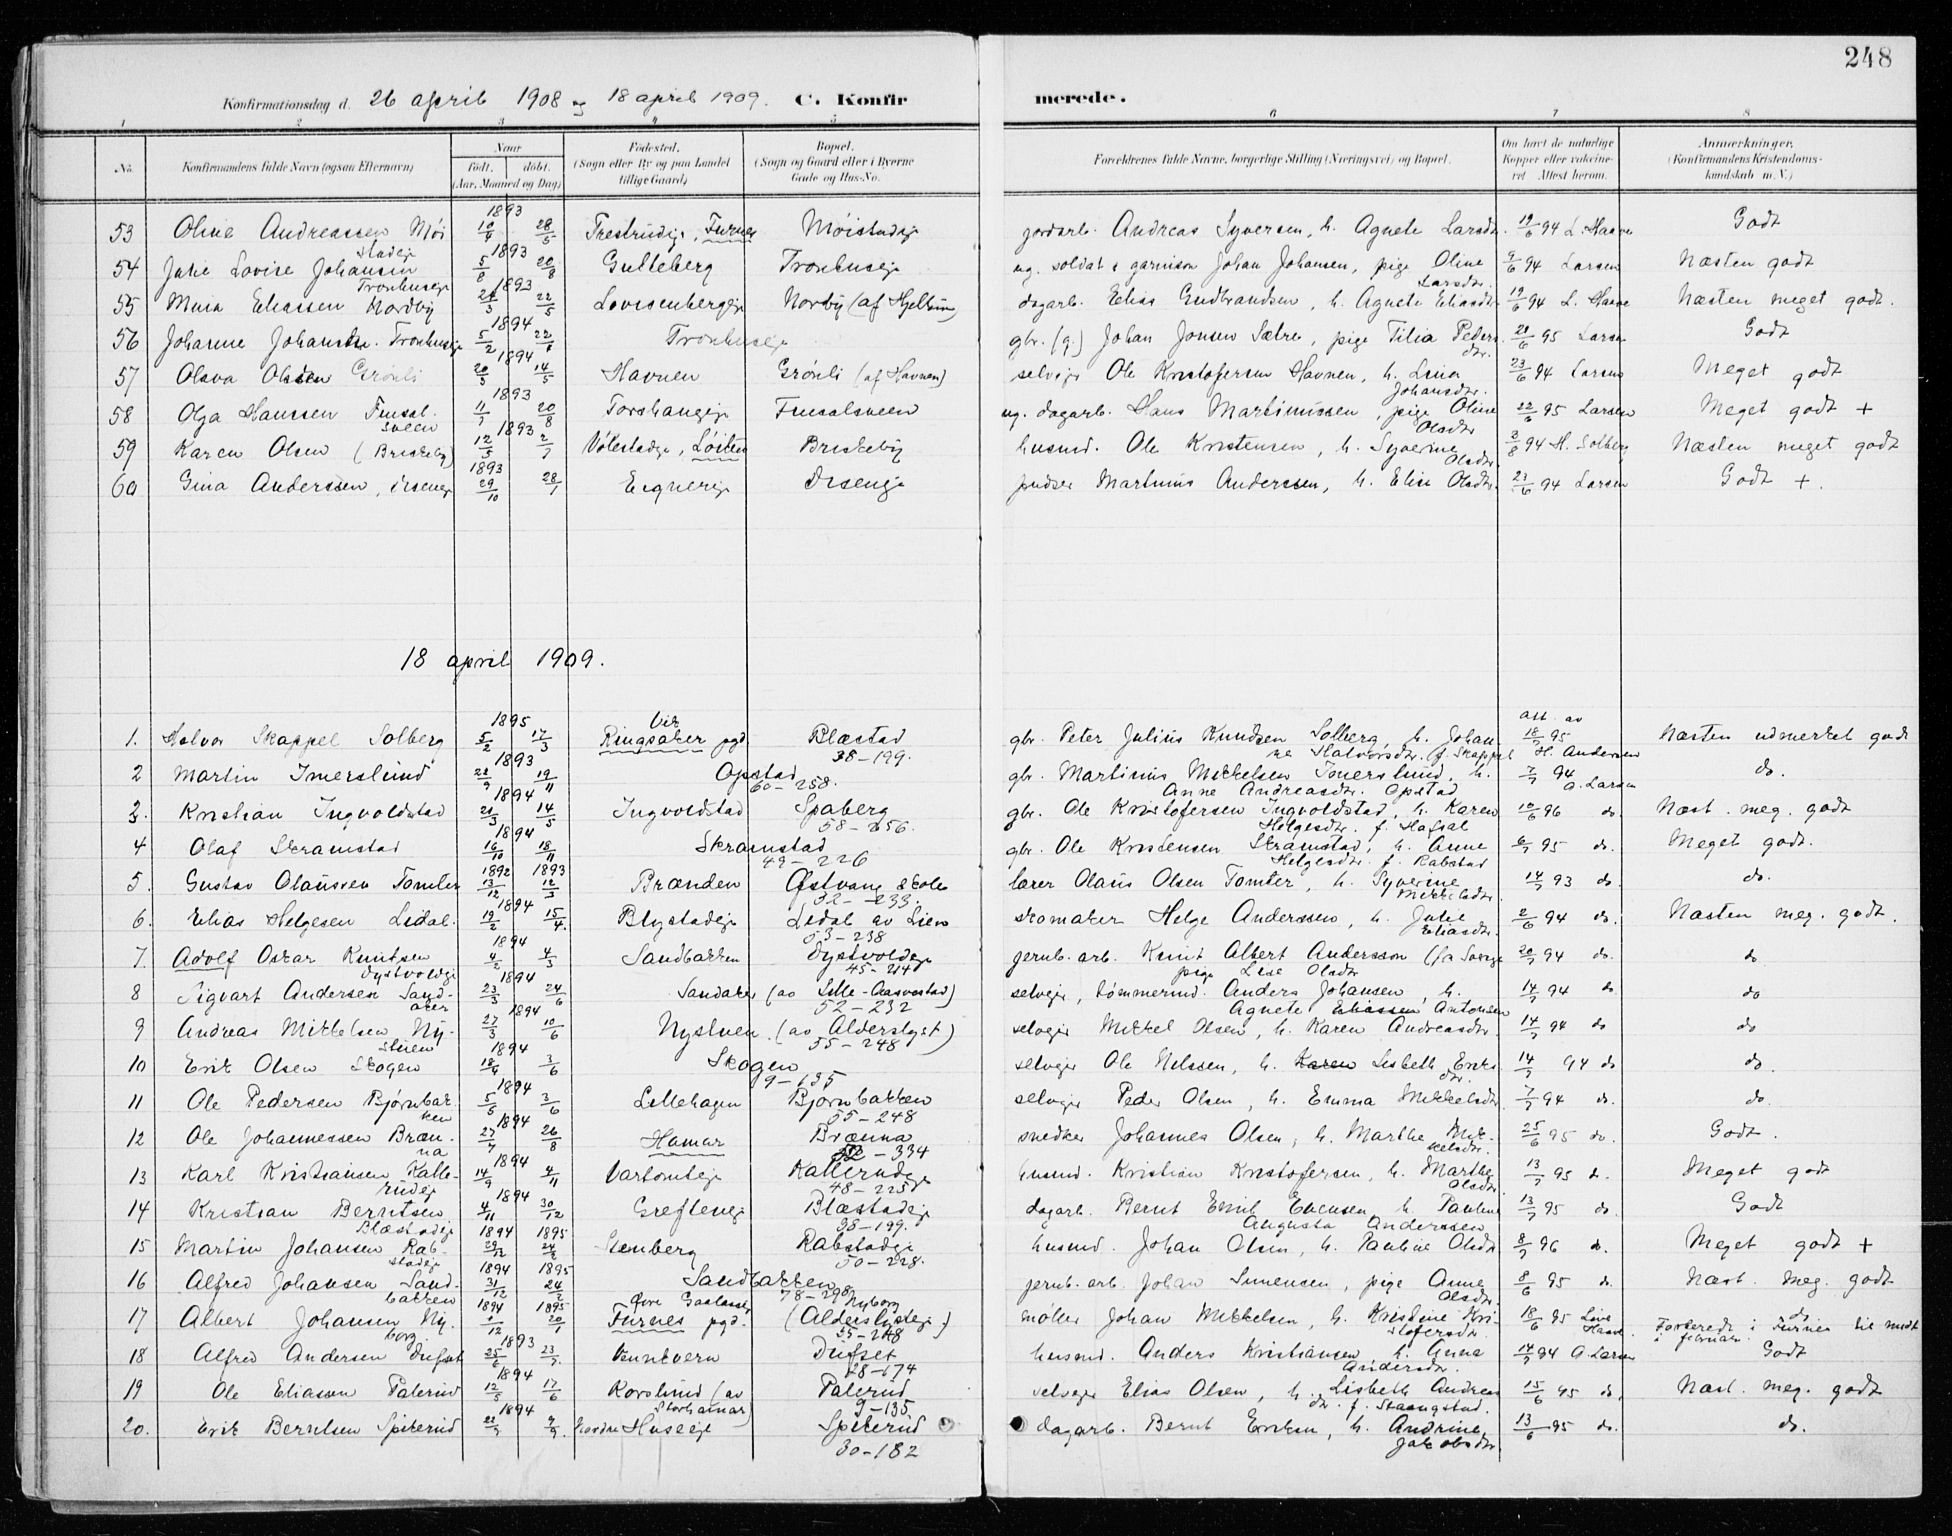 248
Konfirmationsdag d. 26 april 1908 og 18 april 1909. C. Konfirmerede.
1 2 3 4 5 6 7 8
No. Konfirmandens fulde Navn (ogsaa Efternavn) Naar født, døbt. (Aar, Maaned og Dag) Fødested. (Sogn eller By og paa Landet tillige Gaard) Bopæl. (Sogn og Gaard eller i Byerne Gade og Hus-No. Forældrenes fulde Navne, borgerlige Stilling (Næringsvei) og Bopæl. Om havt de naturlige Kopper eller vakcineret. Attest herom. Anmærkninger. (Konfirmandens Kristendomskundskab m. V.)
53 Oline Andreassen Möistadeje 1893 28/5 Furnes Möistadeje jordarb. Andreas Syversen, h. Agnete Larsdtr. 19/6 94 L. Haave Godt
54 Julie Lovise Johansen Tronhuseje 1893 5/8 20/8 Gulleberg Tronhuseje ug. soldat i garnison Johan Johansen, pige Oline Larsdtr. 9/6 94 Larsen Næsten godt
55 Eliassen Nordby 1893 22/5 Lovisenbergeje Norby dagarb. Elias Gudbrandsen, h. Agnete Eliasdtr. 19/6 94 L. Haave Næsten meget godt.
56 Johanne Johansen Tronhuseje 1894 5/2 Tronhuseje gbr. (g.) Johan Jonsen Sætre, pige Tilia Pedersdtr. 20/6 95 Larsen Godt
57 Olava Olsen Grönli 1894 20/3 14/5 Havnen Grönli (af Havnen) selveier Ole Kristofersen Havnen, h. Lina Johansdtr. 23/6 94 Larsen Meget godt
58 Olga Hanssen Finsalsveen 1893 20/8 Torshaugeje Finsalsveen ug. dagarb. Hans Martinussen, pige Oline Olsdtr 22/6 95 Larsen Meget godt +
59 Karen Olsen (Briskeby) 1893 12/5 2/7 Löiten Briskeby husmd. Ole Kristensen, h. Syverine Olsdtr 3/8 94 H. Solberg Næsten meget godt
60 Gina Anderssen, Diseneje 1893 29/10 28/1 Disenge pudser Martinius Anderssen, h. Elise Olsdtr. 23/6 94 Larsen Godt +.
18 april 1909.
1. Halvor Skappel Solberg 1895 5/2 17/3 Ringsaker pgd Blæstad 38-199. gbr. Peter Julius Knudsen Solberg, h. Johanne Halvorsdtr. f. Skappel att. av 18/9 95 H. Andersen Næsten udmerket godt
2 Martin Imerslund 1893 19/11 Opstad 60-258. gbr. Martinius Mikkelsen Imerslund, h. Anne Andreasdtr. Opstad 7/7 94 A. Larsen do.
3. Kristian Ingvoldstad 1894 14/5 Ingvoldstad Spaberg 58-256. gbr. Ole Kristofersen Ingvoldstad, h. Karen Helgesdtr. f. Hafsal 10/6 96 do. Næst. meg. godt
4 Olaf Skramstad 1894 16/10 18/11 Skramstad 49-226 gbr. Ole Kristensen Skramstad, h. Anne Helgesdtr. f. Rabstad 6/7 95 do. Meget godt.
5. Gustav Olaussen Tomter 1892 1893 13/12 12/3 Brænden Østvang skole 52-233. lærer Olaus Olsen Tomter, h. Syverine Mikkelsdtr. 14/7 93 do. do.
6. Elias Helgesen Lidal. 1894 19/2 15/4. Blystadeje Lidal av Lien 53-238 skomaker Helge Anderssen, h. Julie Eliasdtr. 2/6 94 do. Næsten meg. godt.
7. Adolf Oskar Knutsen Dystvoldeje 1894 4/2 4/3 Sandbakken Dystvoldeje 45-214 jernb. arb. Knut Albert Andersson (fra Sverige pige Lise Olsdtr 20/7 94 do. do
8 Sigvart Andersen Sandaker 1894 23/3 24/6 Sandaker (av Lille-Aasvestad) 52-232 selveier, tømmermd. Anders Johansen, h. Agnete Eliassen Antonsen 14/7 94 do do
9 Andreas Mikkelsen Nystuen 1894 27/3 10/6 Nystuen (av Alderslyst) 55-248 selveier Mikkel Olsen, h. Karen Andreasdtr 14/7 94 do do
10 Erik Olsen Skogen 1894 3/6 Skogen 9-135 selveier Ole Nilssen, h. Karen Lisbeth Eriksdtr. 14/7 94 do do.
11 Ole Pedersen Bjørnbakken 1894 5/5 3/6 Lillehagen Bjørnbakken 55-248 selveier Peder Olsen, h. Emma Mikkelsdtr. 7/7 94 do. do.
12 Ole Johannessen Brænna 1894 26/8 Hamar Brænna -334 snedker Johannes Olsen, h. Marthe Mikkelsdtr. 25/6 95 do. Godt.
13 Karl Kristiansen Kallerudeje 1894 14/9 4/11 Kallerudeje 48-225 husmd. Kristian Kristofersen, h. Marthe Olsdtr. 13/7 95 d. Meget godt
14 Kristian Berntsen Blæstadeje 1894 4/11 30/12 Grefleneje Blæstadeje 38-199. dagarb. Bernt Emil Evensen, h. Pauline Augusta Anderssen 13/7 95 do. Godt
15 Martin Johansen Rabstadeje 1894 1895 29/12 Stenberg Rabstadeje 50-228. husmd. Johan Olsen, h. Pauline Olsdtr 8/7 96 d. Meget godt +
16 Alfred Johansen Sandbakken 1894 1895 31/12 24/2 Sandbakken 78-298 jernb. arb. Johan Simensen, pige Anne Olsdtr. 8/6 95 d. Næst. Meg. godt
17 Albert Johansen Nyborg 1894 1895 /12 20/1 Furnes pgd. Nyborg (Alderslysteje) 55-248 møller Johan Mikkelsen, h. Kristine Kristofersdtr. 18/6 95 Line Haave. do. Forberedt i Furnes til midt i februar.
18 Alfred Andersen Dufset 1893 25/6 23/7 Dufset 28-174 husmd. Anders Kristiansen h. Anna Andersdtr. 14/7 94 A. Larsen Godt
19 Ole Eliasen Palerud 1894 12/5 17/6 Korslund (av Storhamar) Palerud 9-135 selveier Elias Olsen, h. Lisbeth Andreasdtr. f. Staangstad. 15/6 95 do. Næst. meg. godt
20. Erik Berntsen Spikerud 1894 Nordre Huseeje Spikerud 30-182 dagarb. Bernt Eriksen, h. Andrine Jakobsdtr 13/6 95 do. do.